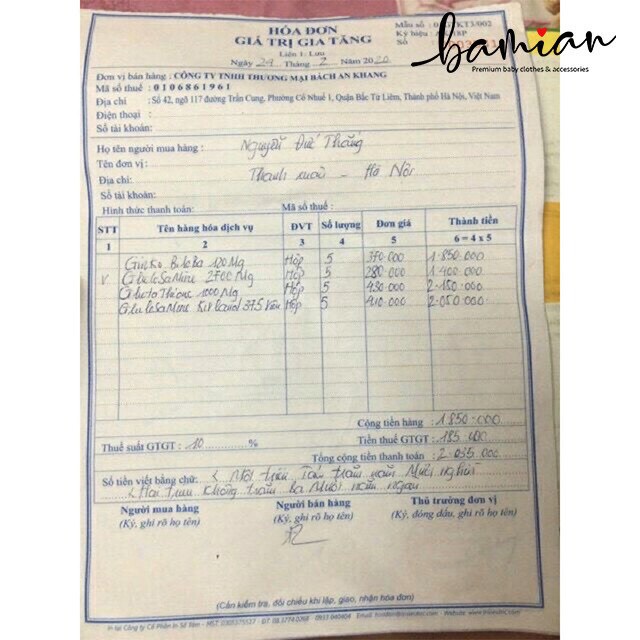 HÓA ĐƠN
GIÁ TRỊ GIA TĂNG
Liên 1: Lưu
Ngày 29 Tháng 2 Năm 2020
Mẫu số :
Ký hiệu :
Số
bamian
Premium baby clothes & accessories
Đơn vị bán hàng : CÔNG TY TNHH THƯƠNG MẠI BÁCH AN KHANG
Mã số thuế : 0106861961
Địa chỉ : Số 42, ngõ 117 đường Trần Cung, Phường Cổ Nhuế 1, Quận Bắc Từ Liêm, Thành phố Hà Nội, Việt Nam
Điện thoại :
Số tài khoản:
Họ tên người mua hàng : Nguyễn Đức Thắng
Tên đơn vị :
Địa chỉ: Thanh xuân - Hà Nội
Số tài khoản:
Hình thức thanh toán: Mã số thuế :
STT Tên hàng hóa dịch vụ ĐVT Số lượng Đơn giá Thành tiền
1 2 3 4 5 6 = 4 x 5
Ginko BiloBa 120 Mg Hộp 5 370.000 1.850.000
v GluCoSaMine 2700 Mg Hộp 5 280.000 1.400.000
1000 Mg Hộp 5 430.000 2.150.000
GluCoSaMine 375 Viên Hộp 5 410.000 2.050.000
Cộng tiền hàng : 1.850.000
Thuế suất GTGT : 10 % Tiền thuế GTGT : 185.000
Tổng cộng tiền thanh toán : 2.035.000
Số tiền viết bằng chữ: < Một triệu Tám trăm năm Mươi nghìn
< Hai triệu không trăm ba Mươi năm ngàn
Người mua hàng Người bán hàng Thủ trưởng đơn vị
(Ký, ghi rõ họ tên) (Ký, ghi rõ họ tên) (Ký, đóng dấu, ghi rõ họ tên)
(Cần kiểm tra, đối chiếu khi lập, giao, nhận hóa đơn)